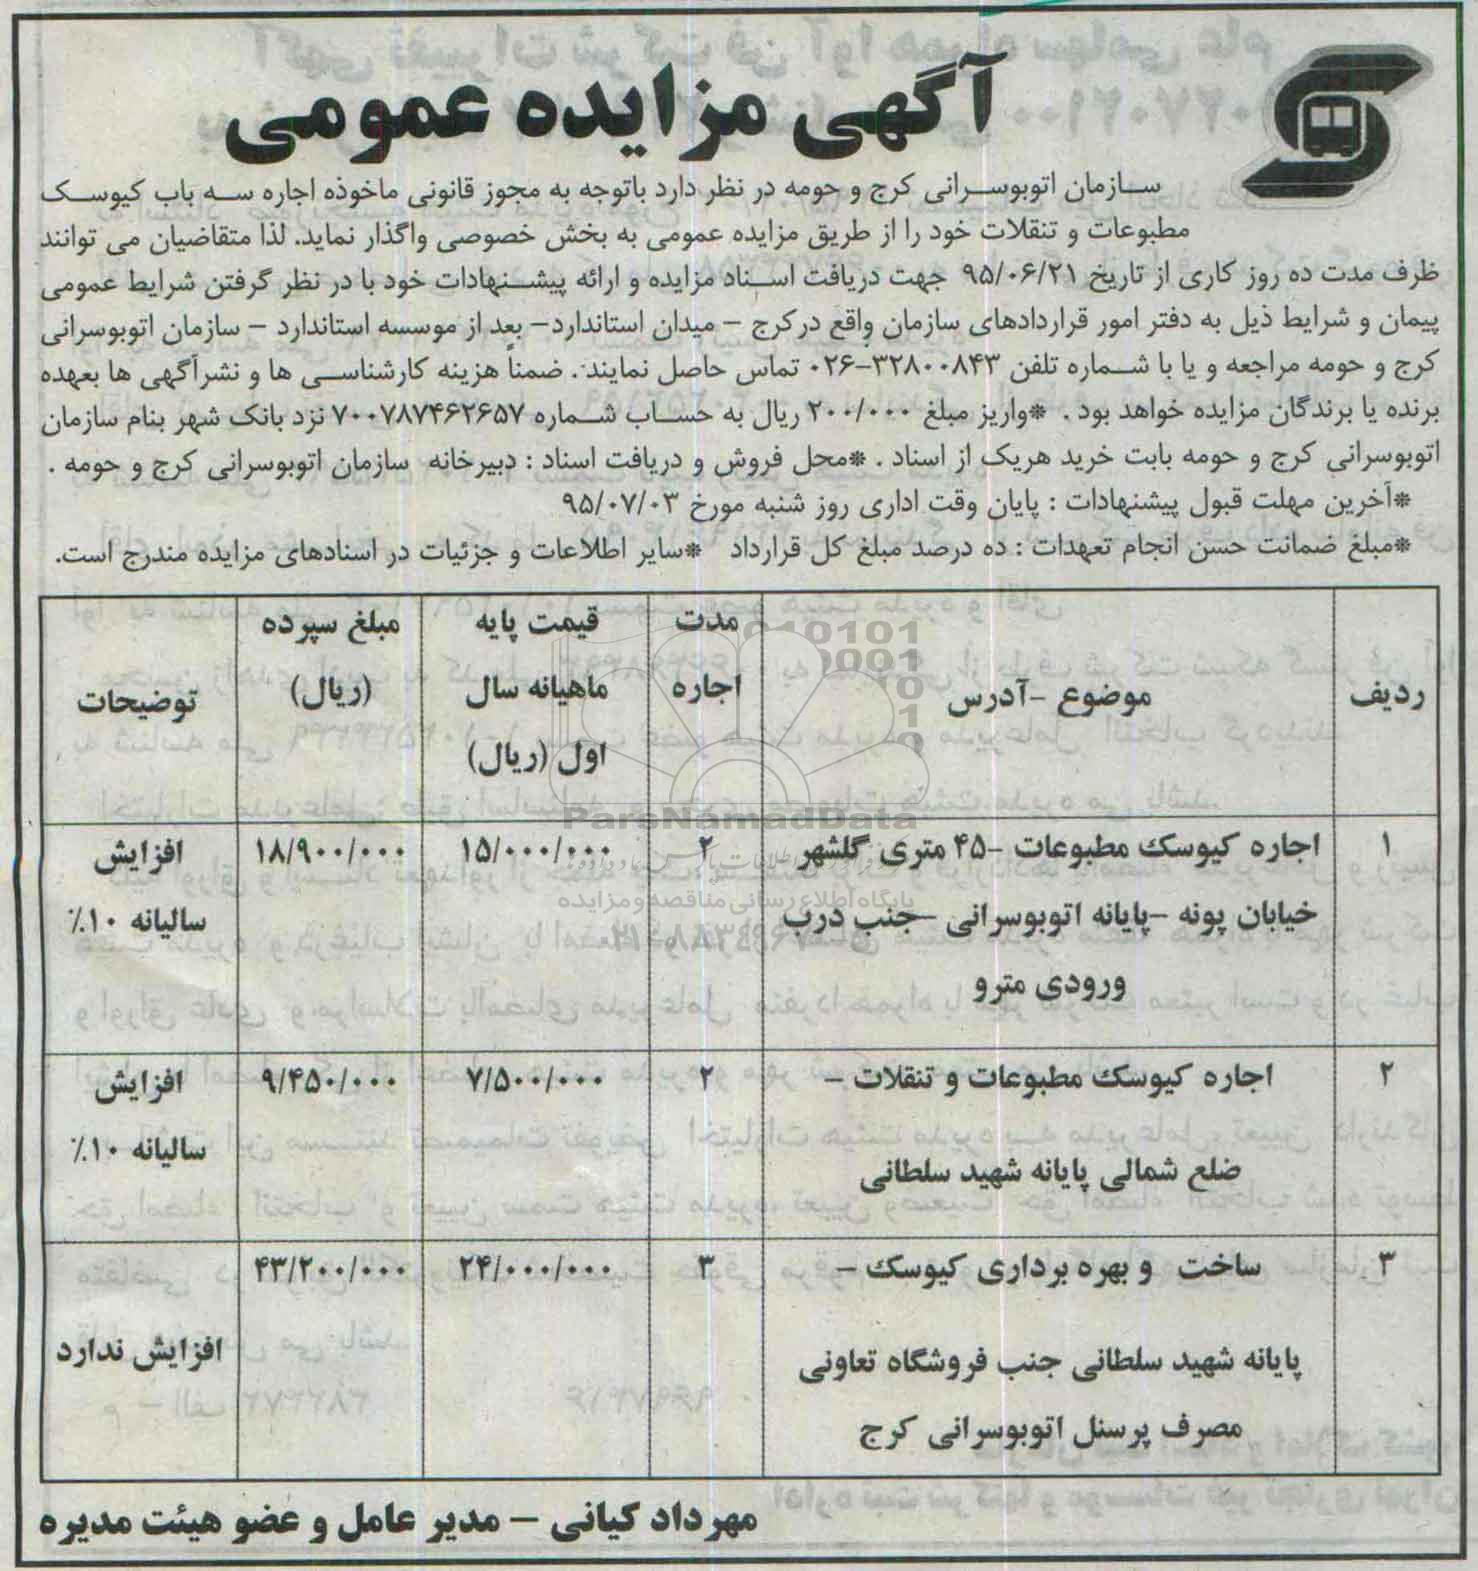 آگهی مزایده عمومی
سازمان اتوبوسرانی کرج و حومه در نظر دارد باتوجه به مجوز قانونی ماخوذه اجاره سه باب کیوسک
مطبوعات و تنقلات خود را از طریق مزایده عمومی به بخش خصوصی واگذار نماید. لذا متقاضیان می توانند
ظرف مدت ده روز کاری از تاریخ ۹۵/۰۶/۲۱ جهت دریافت اسناد مزایده و ارائه پیشنهادات خود با در نظر گرفتن شرایط عمومی
پیمان و شرایط ذیل به دفتر امور قراردادهای سازمان واقع درکرج – میدان استاندارد– بعد از موسسه استاندارد – سازمان اتوبوسرانی
کرج و حومه مراجعه و یا با شماره تلفن ۳۲۸۰۰۸۴۳-۰۲۶ تماس حاصل نمایند. ضمناً هزینه کارشناسی ها و نشرآگهی ها بعهده
برنده یا برندگان مزایده خواهد بود . *واریز مبلغ ۲۰۰/۰۰۰ ریال به حساب شماره ۷۰۰۷۸۷۴۶۲۶۵۷ نزد بانک شهر بنام سازمان
اتوبوسرانی کرج و حومه بابت خرید هریک از اسناد . *محل فروش و دریافت اسناد : دبیرخانه سازمان اتوبوسرانی کرج و حومه .
*آخرین مهلت قبول پیشنهادات : پایان وقت اداری روز شنبه مورخ ۹۵/۰۷/۰۳
*مبلغ ضمانت حسن انجام تعهدات : ده درصد مبلغ کل قرارداد *سایر اطلاعات و جزئیات در اسنادهای مزایده مندرج است.
ردیف
موضوع -آدرس
مدت
اجاره
قیمت پایه
ماهیانه سال
اول (ریال)
مبلغ سپرده
(ریال)
توضیحات
۱
اجاره کیوسک مطبوعات -۴۵ متری گلشهر -
خیابان پونه -پایانه اتوبوسرانی -جنب درب
ورودی مترو
۲
۱۵/۰۰۰/۰۰۰
۱۸/۹۰۰/۰۰۰
افزایش
سالیانه ۱۰٪
۲
اجاره کیوسک مطبوعات و تنقلات -
ضلع شمالی پایانه شهید سلطانی
۲
۷/۵۰۰/۰۰۰
۹/۴۵۰/۰۰۰
افزایش
سالیانه ۱۰٪
۳
ساخت و بهره برداری کیوسک -
پایانه شهید سلطانی جنب فروشگاه تعاونی
مصرف پرسنل اتوبوسرانی کرج
۳
۲۴/۰۰۰/۰۰۰
۴۳/۲۰۰/۰۰۰
افزایش ندارد
مهرداد کیانی – مدیر عامل و عضو هیئت مدیره
ParsNamadData
پایگاه اطلاع رسانی مناقصه و مزایده